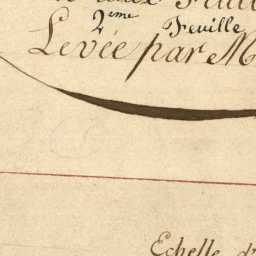 2eme Feuille
Levée par M
Echelle d